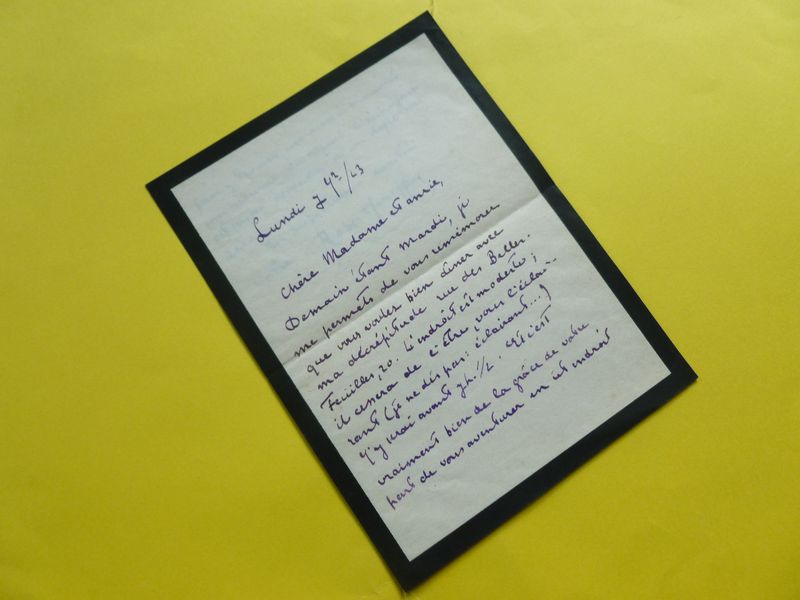 Lundi 7 /23
Chère Madame et amie,
Demain étant mardi, je
me permets de vous remémorer
que vous voulez bien dîner avec
ma décrépitude rue des Belles-
Feuilles, 20. L'endroit est modeste ;
il cessera de l'être vous l'éclai-
rant (je ne dis pas: éclairant...)
J'y serai avant 7h.1/2. Et c'est
vraiment bien de la grâce de votre
part de vous aventurer en cet endroit